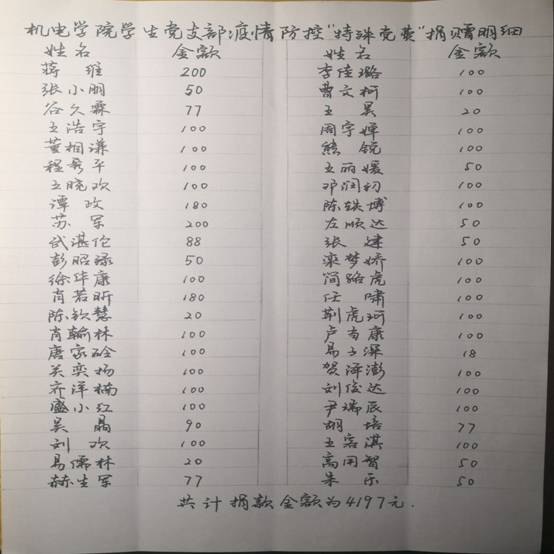 机电学院学生党支部疫情防控"特殊党费"捐赠明细
姓名 金额 姓名 金额
蒋维 200 李佳璐 100
张小朋 50 曹文柯 100
谷久霖 77 王昊 20
王浩宇 100 周宇婵 100
董相谦 100 熊锐 100
程秀平 100 王丽媛 50
王晓欢 100 邓润初 100
谭政 180 陈轶博 100
苏军 200 左顺达 50
武湛伦 88 张健 50
彭昭禄 50 梁梦娇 100
徐华康 100 简路虎 100
肖若昕 180 任啸 100
陈钦慧 20 荆虎珂 100
肖翰林 100 卢奇康 100
唐家铃 100 易子深 18
关奕杨 100 贺泽澎 100
齐洋楠 100 刘俊达 100
盛小红 100 尹瑞辰 100
吴晶 90 胡培 77
刘欢 100 王容淇 100
易儒林 20 高开智 50
赫生军 77 朱乐 50
共计捐款金额为4197元.